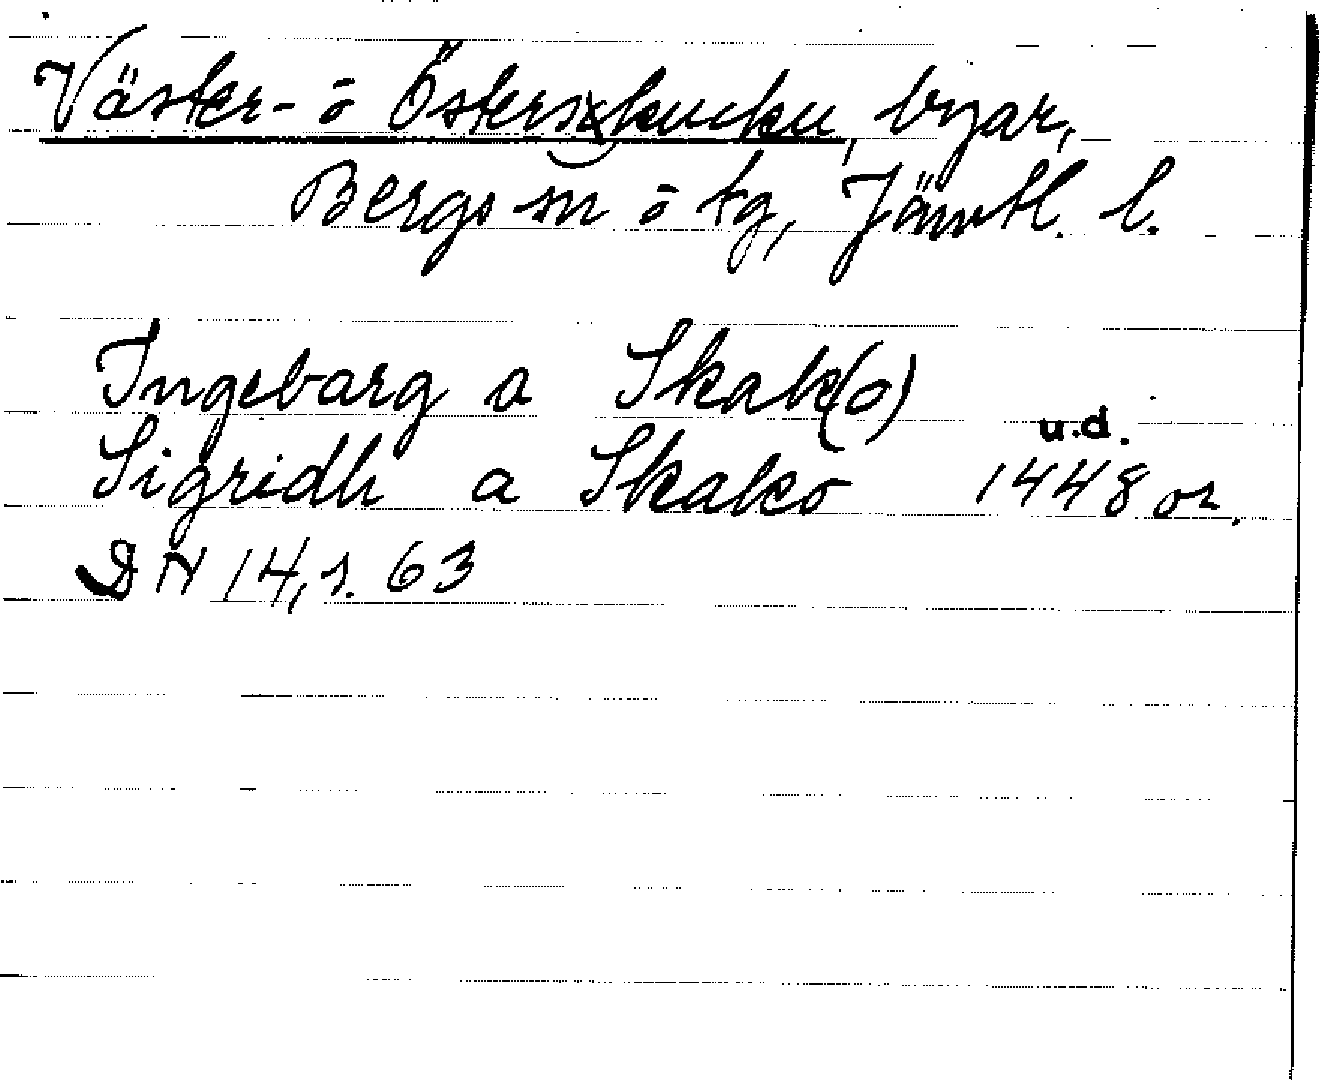 Väster- o Österskucku, byar,
Bergs sn o tg, Jämtl. l.
Ingebarg a Skak(o)
u.d.
Sigridh a Skako 1448 or.
DN 14, s. 63